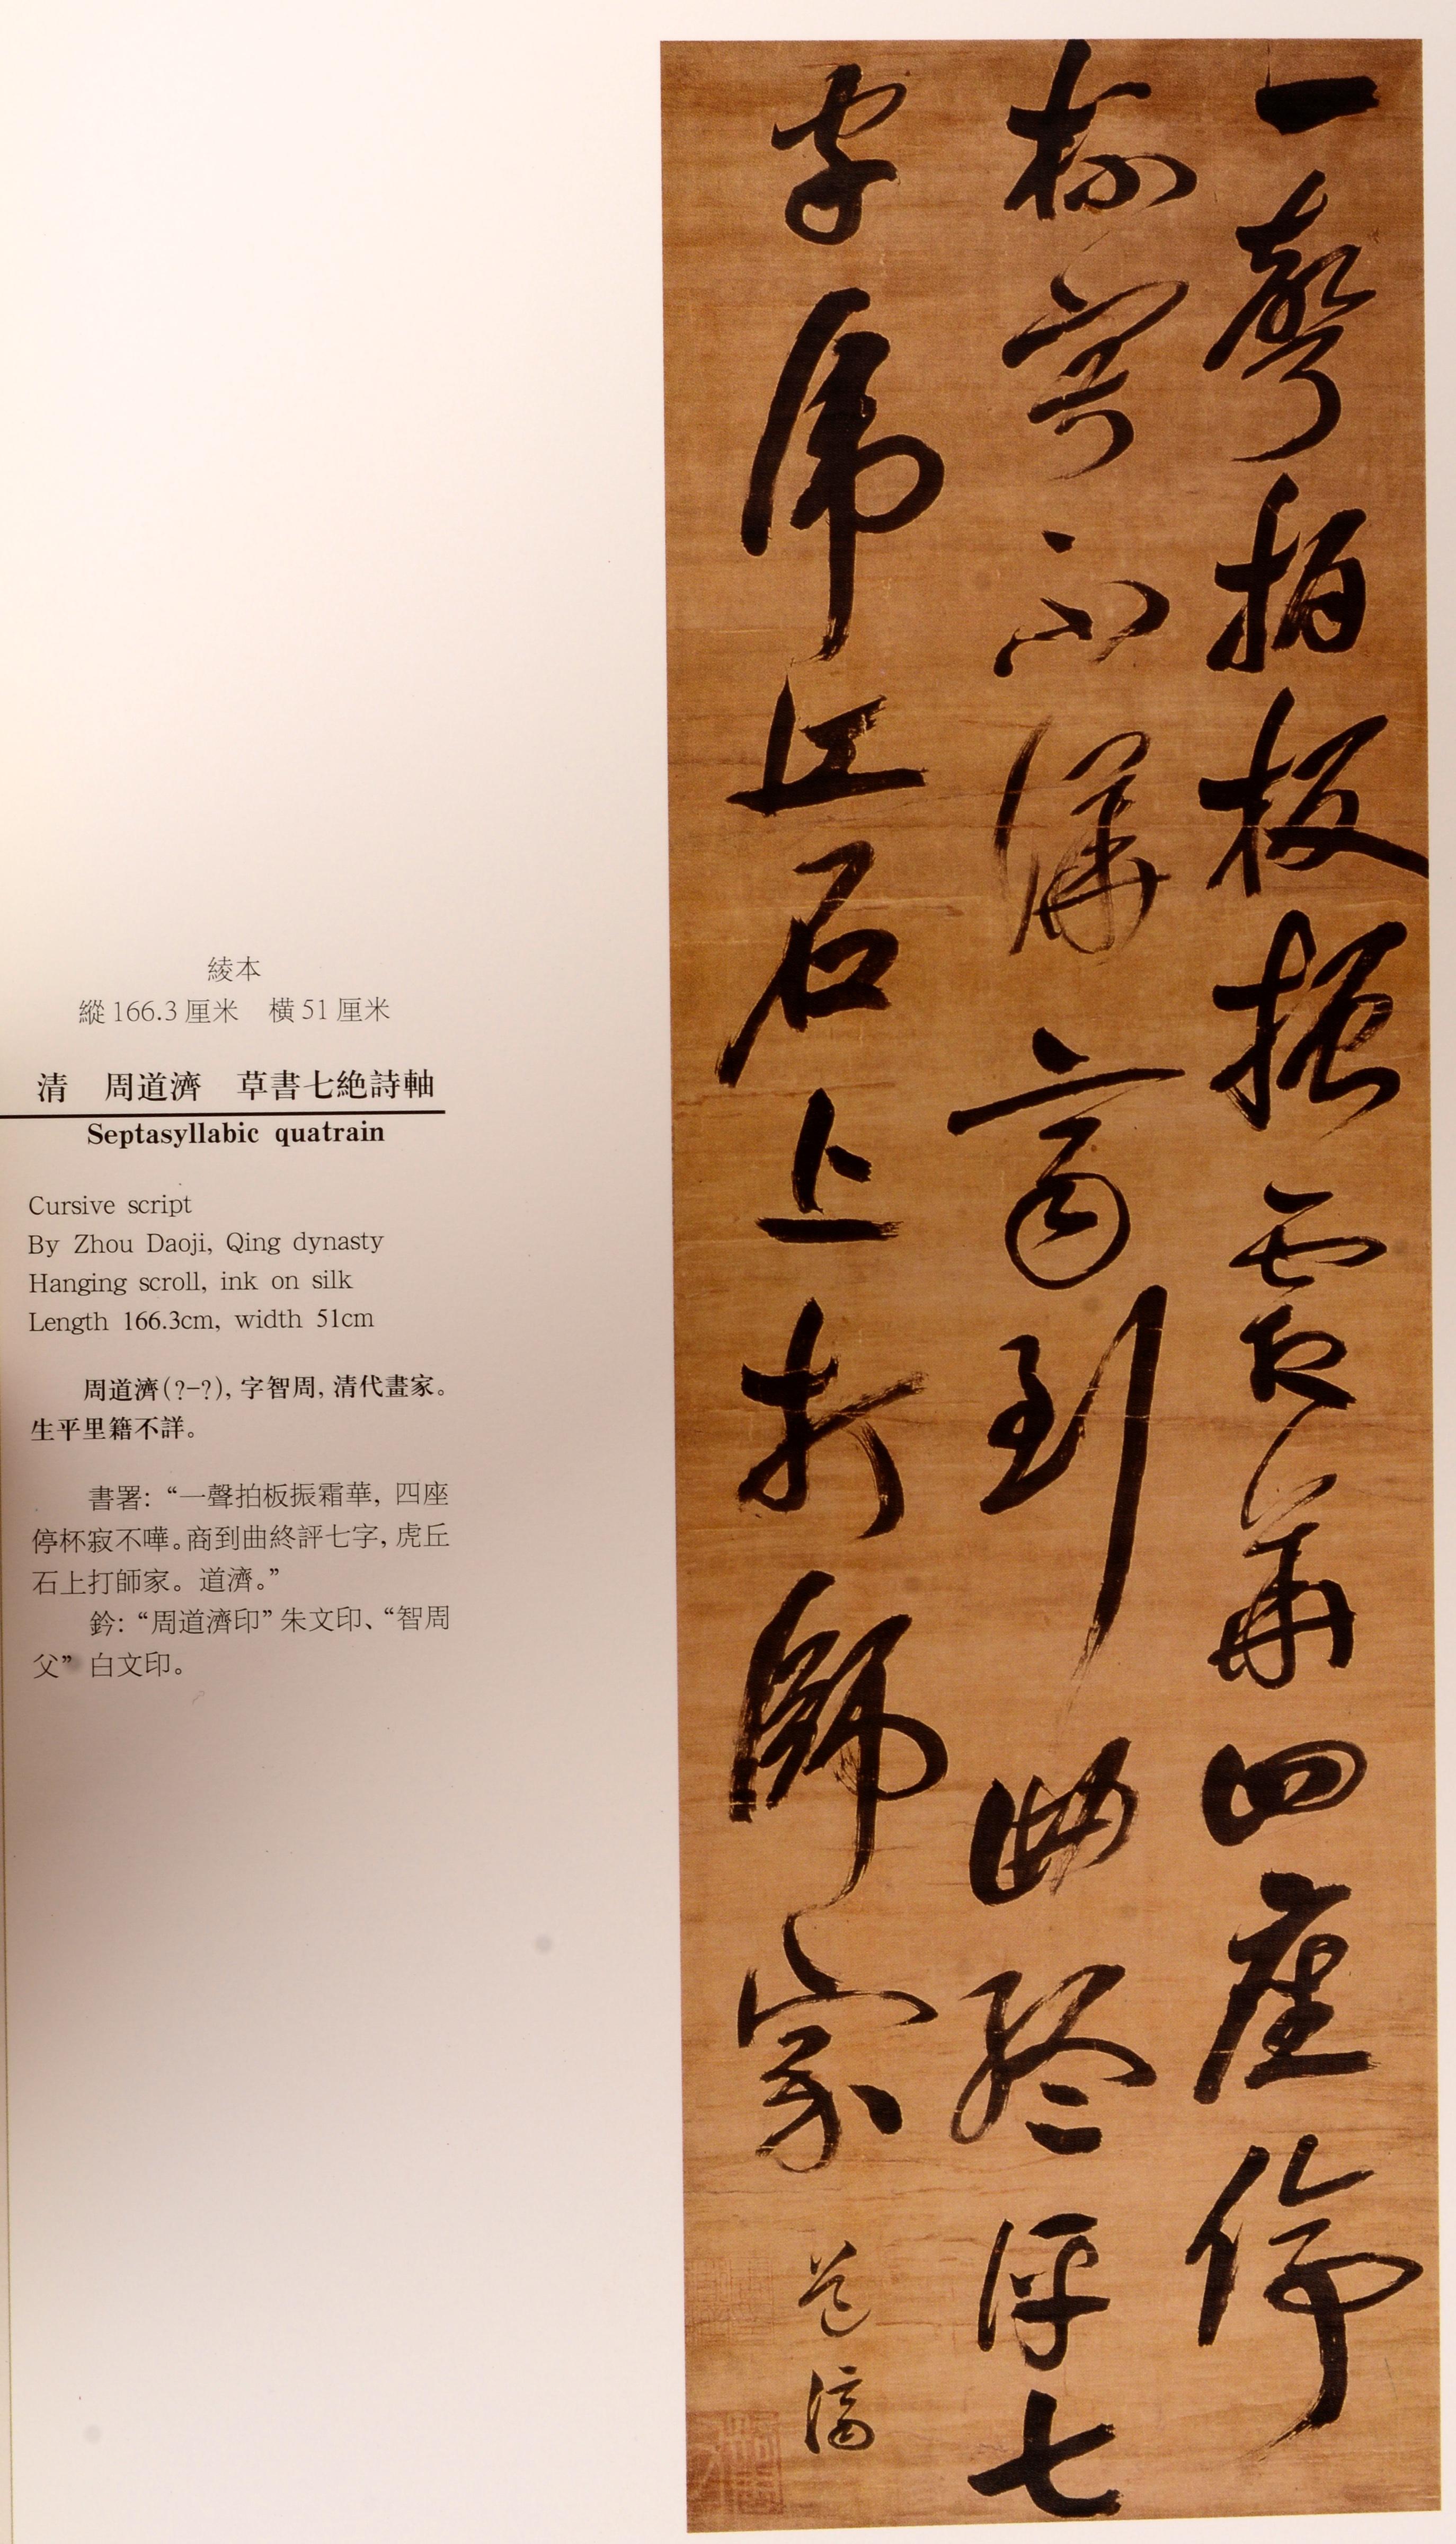 一聲拍板振霜華四座停
杯寂不譁商到曲終評七
字虎丘石上打師家 道濟
綾本
縱166.3厘米 橫51厘米
清 周道濟 草書七絕詩軸
Septasyllabic quatrain
Cursive script
By Zhou Daoji, Qing dynasty
Hanging scroll, ink on silk
Length 166.3cm, width 51cm
周道濟(?-?), 字智周, 清代畫家。
生平里籍不詳。
書署: “一聲拍板振霜華, 四座
停杯寂不嘩。商到曲終評七字, 虎丘
石上打師家。道濟。”
鈐: “周道濟印” 朱文印、“智周
父” 白文印。